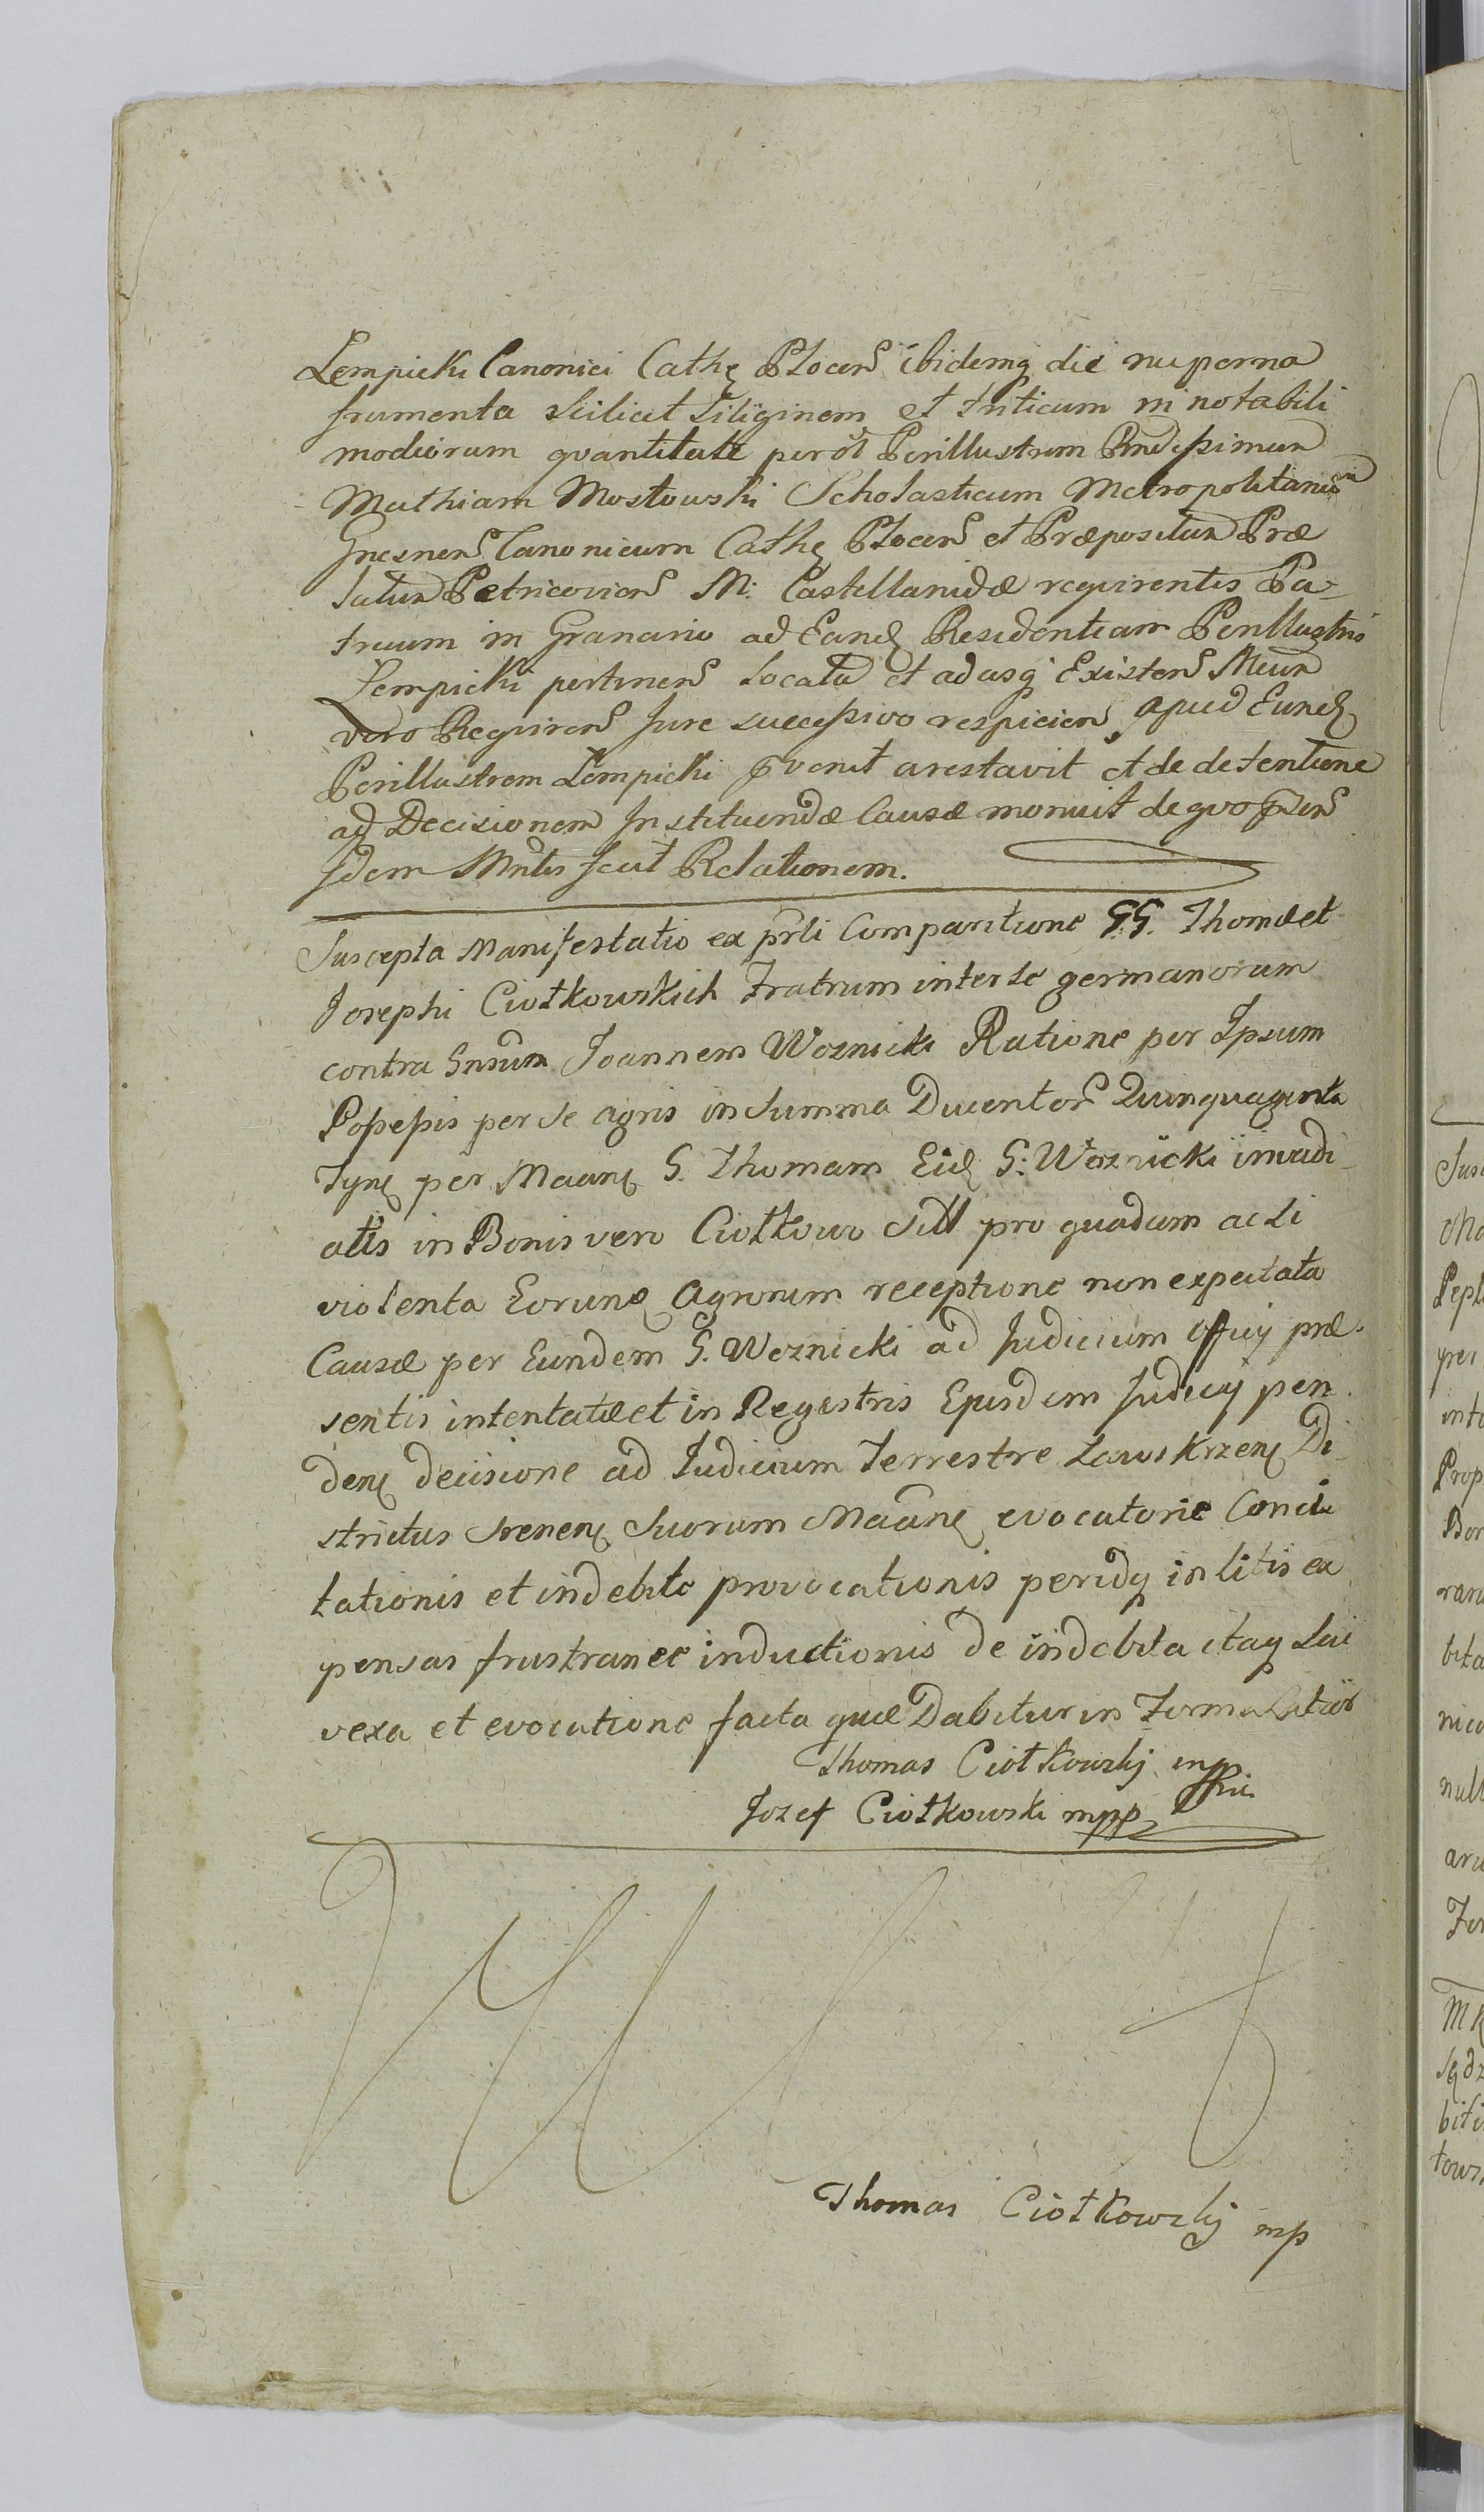 Lempicki Canonici Cathę Plocen̄ ibidemq̨ die nuperna
frumenta scilicet siliginem et triticum in notabili
modiorum quantitate per ōl Perillustrem Rndissimum
Mathiam Mostowski Scholasticum Metropolitanū
Gnesnen̄ Canonicum Cathę Plocen̄ et Præpositum Præ
latum Petricovien̄ M. Castellanidæ requirentis Pa-
truum in Granario ad Eand Residentiam Perillustris
Lempicki pertinen̄ locata et adusq̨ Existen̄ Meum
vero Requiren̄ Jure successivo respicien̄ apud Eund
Perillustrem Lempicki pvenit arestavit et de detentione
ad Decisionem Instituendæ Causæ monuit de quo p̄sen̄
Idem Mnlis fecit Relationem.
Suscepta Manifestatio ex prl̄i Comparitione GG. Thomæ et
Josephi Ciołkowskich Fratrum inter se germanorum
contra Gnsum Joannem Woznicki Ratione per Ipsum
Possessis per se agris in summa Ducentor̄ Quinquaginta
Tynę per Maanę G. Thomam Eid G: Woznicki invadi
atis in Bonis vero Ciołkowo sitt pro quadam acsi
violenta Eorunę Agrorum receptione non expectata
Causæ per Eundem G. Woznicki ad Judicium Officij præ-
sentis intentatæ et in Regestris Ejusdem Judicij pen-
denę decisione ad Judicium Terrestre Zawskrzenę Di-
strictus Srenenę Suorum Maanę evocatorie Conci
tationis et indebite provocationis peridq̨ in litis ex
pensas frustranee inductionis de indebita itaq̨ sui
vexa et evocatione facta quæ Dabitur in Forma Latiori
Thomas Ciołkowskj mp
Jozef Ciołkowski mpp
Thomas Ciołkowskj mp